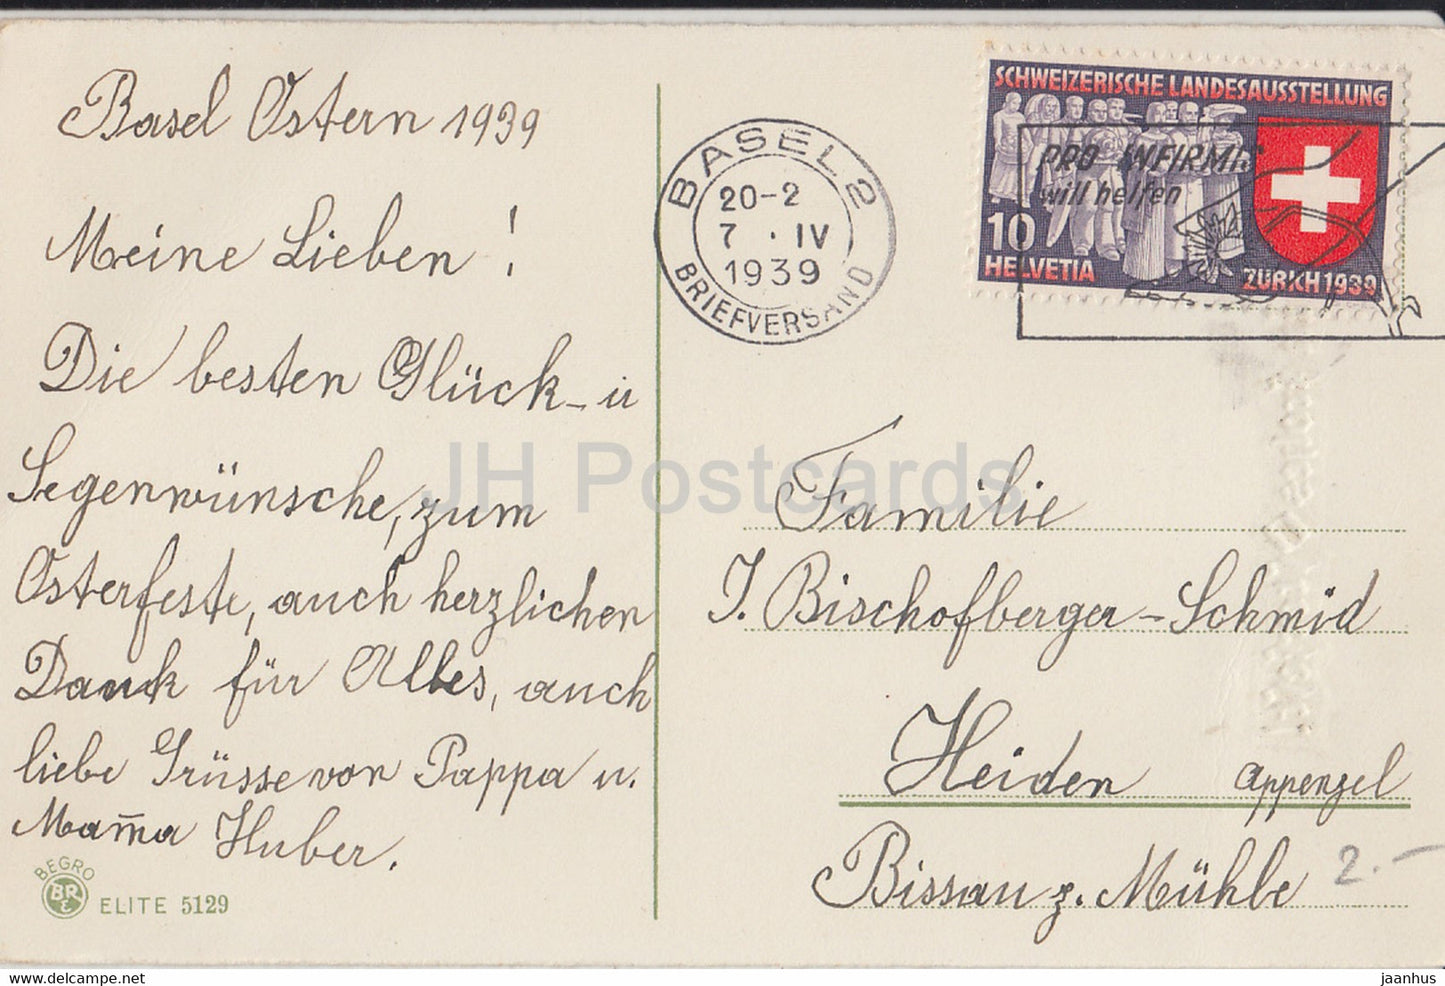 Basel Ostern 1939
Meine Lieben!
Die besten Glück- u
Segenwünsche, zum
Osterfeste, auch herzlichen
Dank für Alles, auch
liebe Grüsse von Pappa u.
Mam̅a Huber.
BEGRO
BR
ELITE 5129
BASEL 2
20-2
7 . IV
1939
BRIEFVERSAND
SCHWEIZERISCHE LANDESAUSSTELLUNG
PRO INFIRMIS
will helfen
10
HELVETIA
ZÜRICH 1939
Familie
J. Bischofberger-Schmid
Heiden Appenzel
Bissau z. Mühle
2.-
JH Postcards
www.delcampe.net
jaanhus